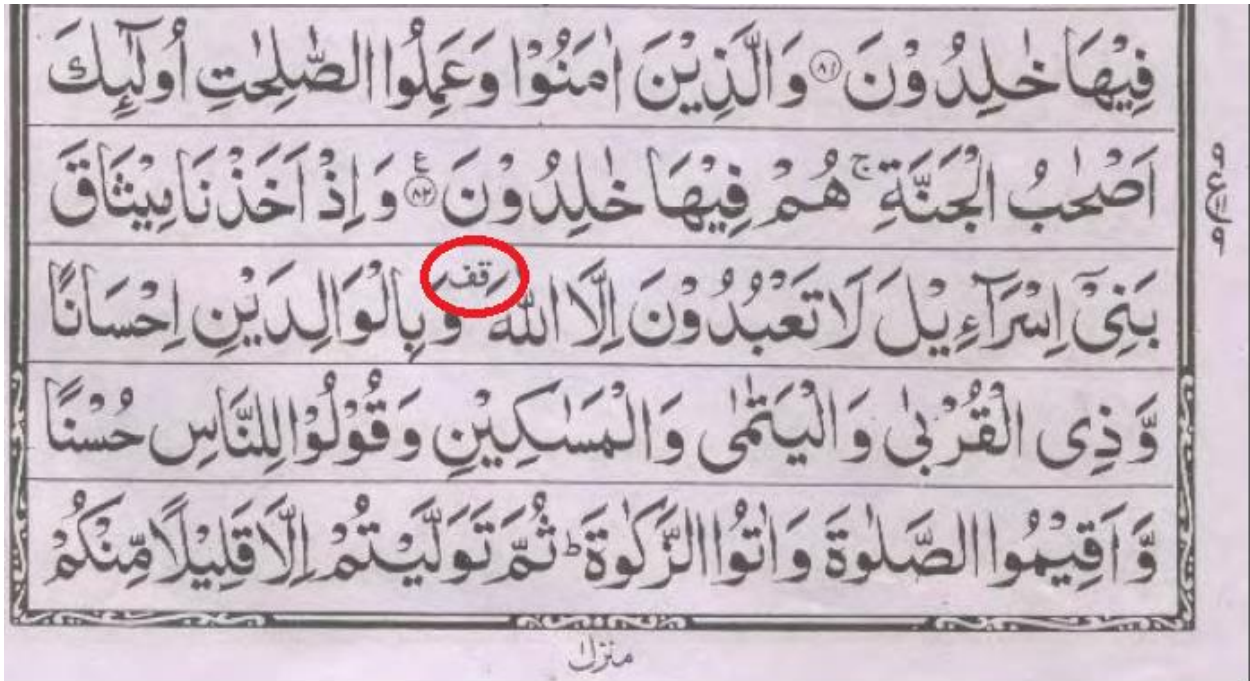 فِيْهَا خٰلِدُوْنَ ۝٨١ وَالَّذِيْنَ اٰمَنُوْا وَعَمِلُوا الصّٰلِحٰتِ اُولٰٓئِكَ
اَصْحٰبُ الْجَنَّةِ ۚ هُمْ فِيْهَا خٰلِدُوْنَ ۝٨٢ ع وَاِذْ اَخَذْنَا مِيْثَاقَ
بَنِيْٓ اِسْرَآءِيْلَ لَا تَعْبُدُوْنَ اِلَّا اللّٰهَ قف وَبِالْوَالِدَيْنِ اِحْسَانًا
وَّذِي الْقُرْبٰى وَالْيَتٰمٰى وَالْمَسٰكِيْنِ وَقُوْلُوْا لِلنَّاسِ حُسْنًا
وَّاَقِيْمُوا الصَّلٰوةَ وَاٰتُوا الزَّكٰوةَ ؕ ثُمَّ تَوَلَّيْتُمْ اِلَّا قَلِيْلًا مِّنْكُمْ
منزل ١